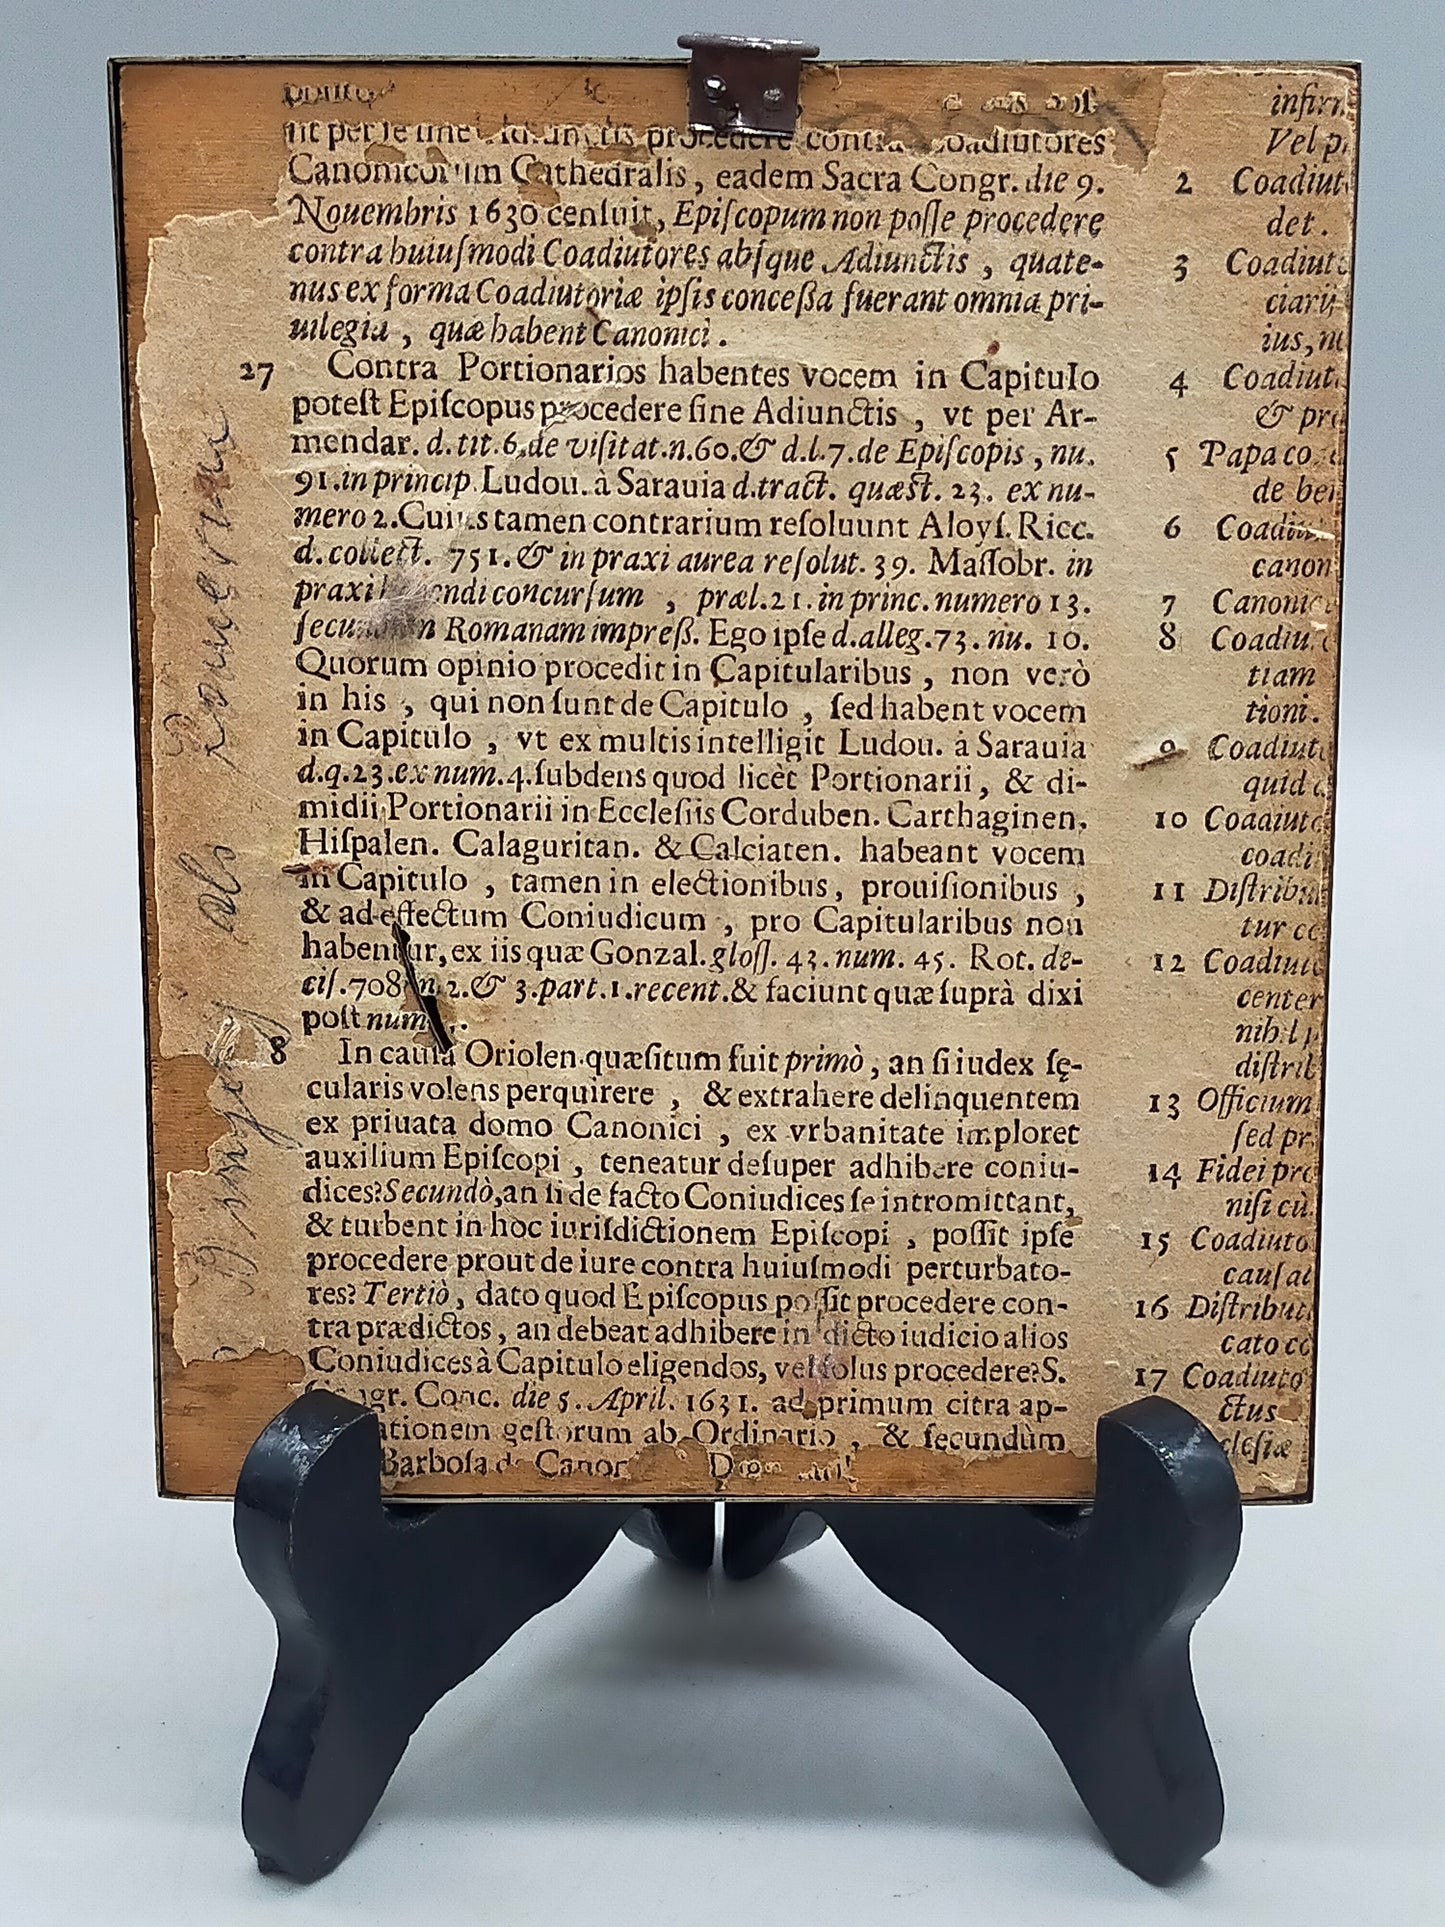 procedere contra Coadiutores
Canonicorum Cathedralis, eadem Sacra Congr. die 9.
Nouembris 1630 cenſuit, Epiſcopum non poſſe procedere
contra huiuſmodi Coadiutores abſque Adiunctis, quate-
nus ex forma Coadiutoriæ ipſis conceßa fuerant omnia pri-
uilegia, quæ habent Canonici.
27 Contra Portionarios habentes vocem in Capitulo
poteſt Epiſcopus procedere ſine Adiunctis, vt per Ar-
mendar. d. tit. 6. de viſitat. n. 60. & d. l. 7. de Epiſcopis, nu.
91. in princip. Ludou. à Sarauia d. tract. quæst. 23. ex nu-
mero 2. Cuius tamen contrarium reſoluunt Aloyſ. Ricc.
d. collect. 751. & in praxi aurea reſolut. 39. Maſſobr. in
praxi habendi concurſum, præl. 21. in princ. numero 13.
ſecundum Romanam impreß. Ego ipſe d. alleg. 73. nu. 10.
Quorum opinio procedit in Capitularibus, non verò
in his, qui non ſunt de Capitulo, ſed habent vocem
in Capitulo, vt ex multis intelligit Ludou. à Sarauia
d. q. 23. ex num. 4. ſubdens quod licèt Portionarii, & di-
midii Portionarii in Eccleſiis Corduben. Carthaginen.
Hiſpalen. Calaguritan. & Calciaten. habeant vocem
in Capitulo, tamen in electionibus, prouiſionibus,
& ad effectum Coniudicum, pro Capitularibus non
habentur, ex iis quæ Gonzal. gloſſ. 43. num. 45. Rot. de-
ciſ. 708. n. 2. & 3. part. 1. recent. & faciunt quæ ſuprà dixi
poſt num.
8 In cauſa Oriolen. quæſitum fuit primò, an ſi iudex ſę-
cularis volens perquirere, & extrahere delinquentem
ex priuata domo Canonici, ex vrbanitate imploret
auxilium Epiſcopi, teneatur deſuper adhibere coniu-
dices? Secundò, an ſi de facto Coniudices ſe intromittant,
& turbent in hoc iuriſdictionem Epiſcopi, poſſit ipſe
procedere prout de iure contra huiuſmodi perturbato-
res? Tertiò, dato quod Epiſcopus poſſit procedere con-
tra prædictos, an debeat adhibere in dicto iudicio alios
Coniudices à Capitulo eligendos, vel ſolus procedere? S.
Congr. Conc. die 5. April. 1631. ad primum citra ap-
ationem geſtorum ab Ordinario, & ſecundùm
Barboſa de Canon
infirm
Vel p
2 Coadiut
det.
3 Coadiuto
ciarij
ius, n
4 Coadiut
& pr
5 Papa co
de ben
6 Coadiu
canon
7 Canonic
8 Coadiu
tiam
tioni.
9 Coadiuto
quid
10 Coadiuto
coadi
11 Diſtribu
tur co
12 Coadiut
center
nihil p
diſtrib
13 Officium
ſed pr
14 Fidei pro
niſi cù
15 Coadiuto
cauſa
16 Diſtribut
cato co
17 Coadiuto
ctus
cleſiæ